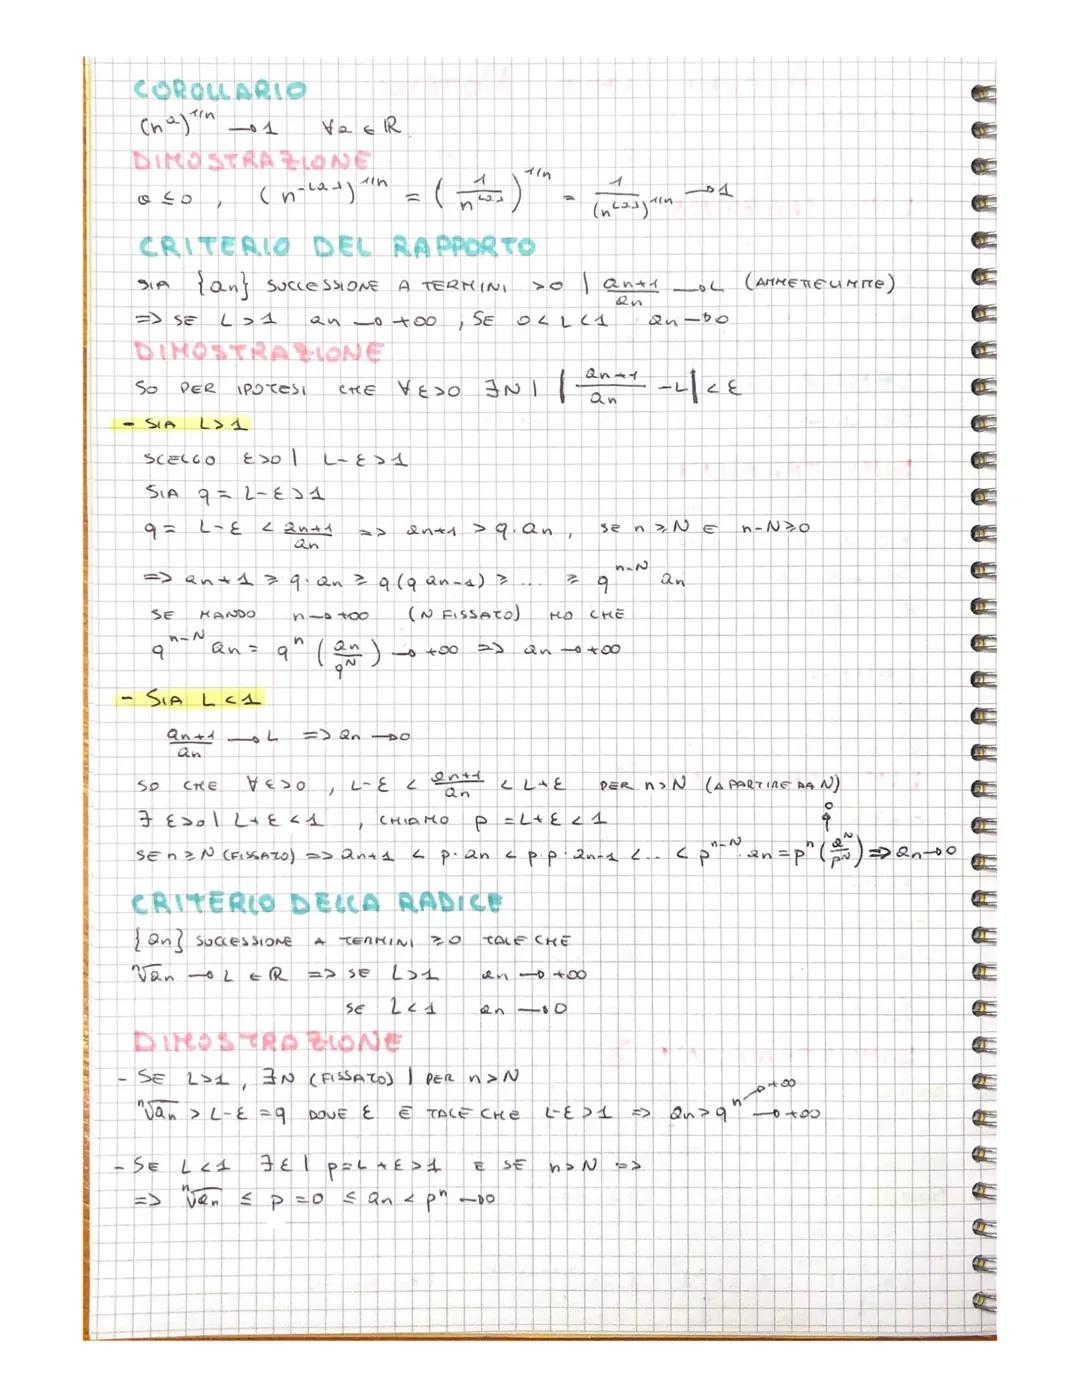 COROLLARIO
(n^a)^1/n → 1 ∀a ∈ ℝ
DIMOSTRAZIONE
a ≤ 0 , (n^-(a))^1/n = (1/n^(a))^1/n = 1/(n^(a))^1/n → 1
CRITERIO DEL RAPPORTO
SIA {an} SUCCESSIONE A TERMINI >0 | an+1/an → L (AMMETTE LIMITE)
=> SE L > 1 an → +∞ , SE 0 < L < 1 an → 0
DIMOSTRAZIONE
SO PER IPOTESI CHE ∀ε>0 ∃N | |an+1/an - L| < ε
- SIA L > 1
SCELGO ε>0 | L-ε>1
SIA q = L-ε>1
q = L-ε < an+1/an => an+1 > q·an , SE n ≥ N E n-N≥0
=> an+1 ≥ q·an ≥ q(q an-1) ≥ ... ≥ q^n-N an
SE MANDO n → +∞ (N FISSATO) HO CHE
q^n-N an = q^n (an/q^N) → +∞ => an → +∞
- SIA L < 1
an+1/an → L => an → 0
SO CHE ∀ε>0 , L-ε < an+1/an < L+ε PER n>N (A PARTIRE DA N)
∃ ε>0 | L+ε<1 , CHIAMO p = L+ε < 1
SE n ≥ N (FISSATO) => an+1 < p·an < p·p·an-1 <.. < p^n-N·an = p^n (a^N/p^N) => an → 0
0
CRITERIO DELLA RADICE
{an} SUCCESSIONE A TERMINI ≥0 TALE CHE
ⁿ√an → L ∈ ℝ => SE L>1 an → +∞
SE L<1 an → 0
DIMOSTRAZIONE
- SE L>1 , ∃N (FISSATO) | PER n>N
ⁿ√an > L-ε = q DOVE ε È TALE CHE L-ε>1 => an>q^n → +∞ → +∞
- SE L<1 ∃ε | p=L+ε>1 E SE n>N =>
=> ⁿ√an ≤ p = 0 ≤ an < p^n → 0